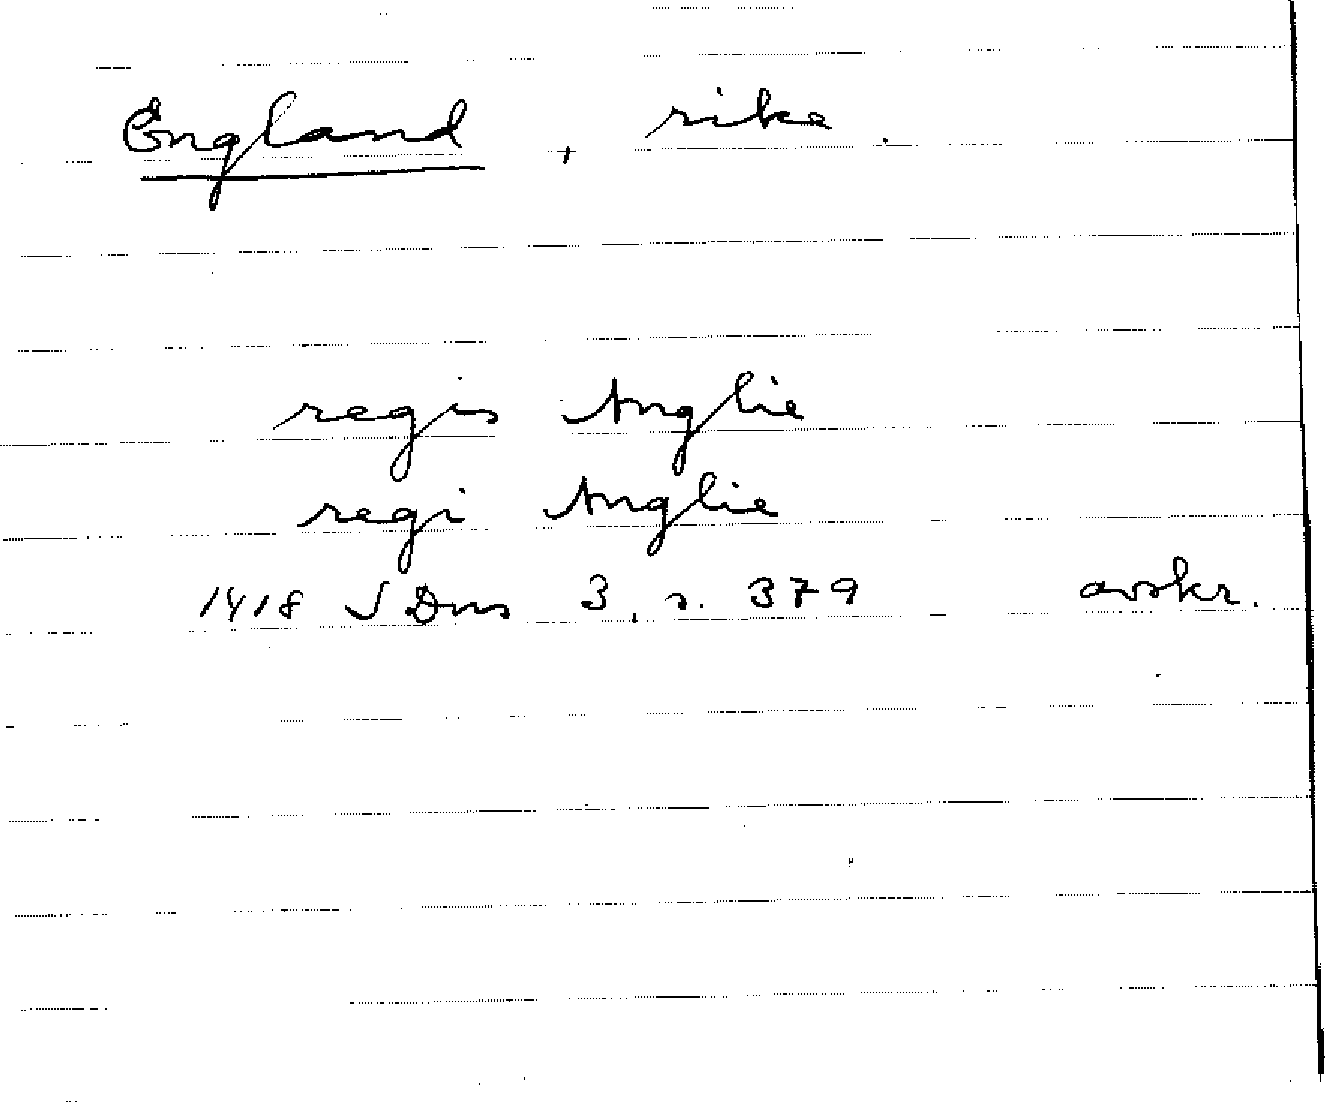 England, rike.
regis Anglie
regi Anglie
1418 SDns 3, s. 379 avskr.